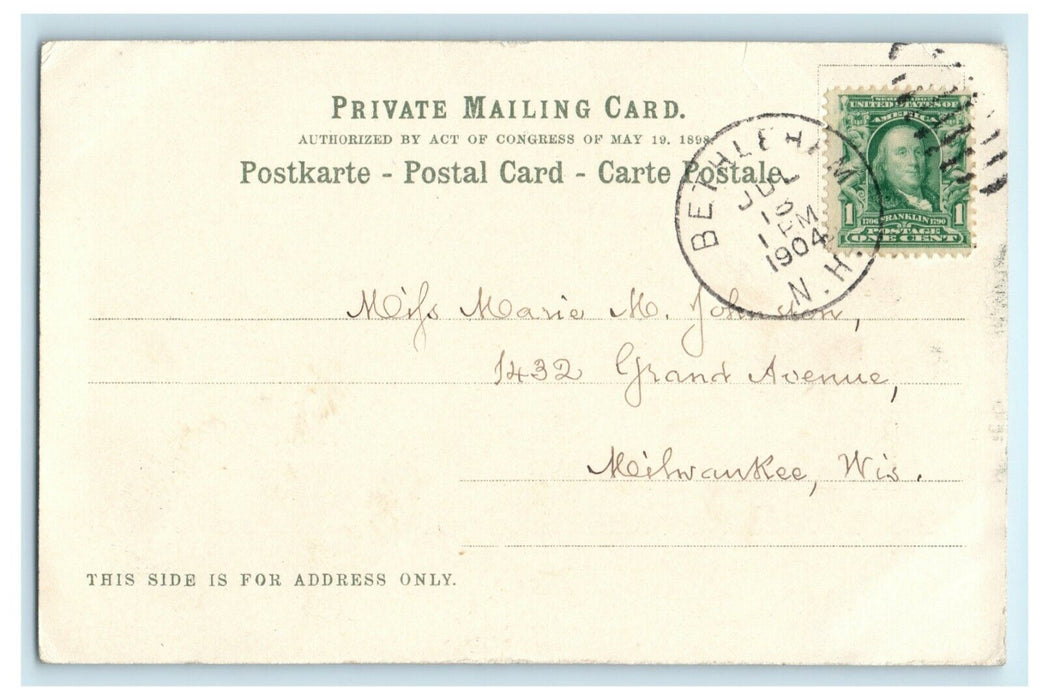 PRIVATE MAILING CARD.
AUTHORIZED BY ACT OF CONGRESS OF MAY 19, 1898.
Postkarte - Postal Card - Carte Postale.
BETHLEHEM
JUL
1 PM
1904
N.H.
SERIES 1902
UNITED STATES OF
AMERICA
1 1
1706 FRANKLIN 1790
POSTAGE
ONE CENT
Miss Marie M. Johnston,
1432 Grand Avenue,
Milwaukee, Wis.
THIS SIDE IS FOR ADDRESS ONLY.